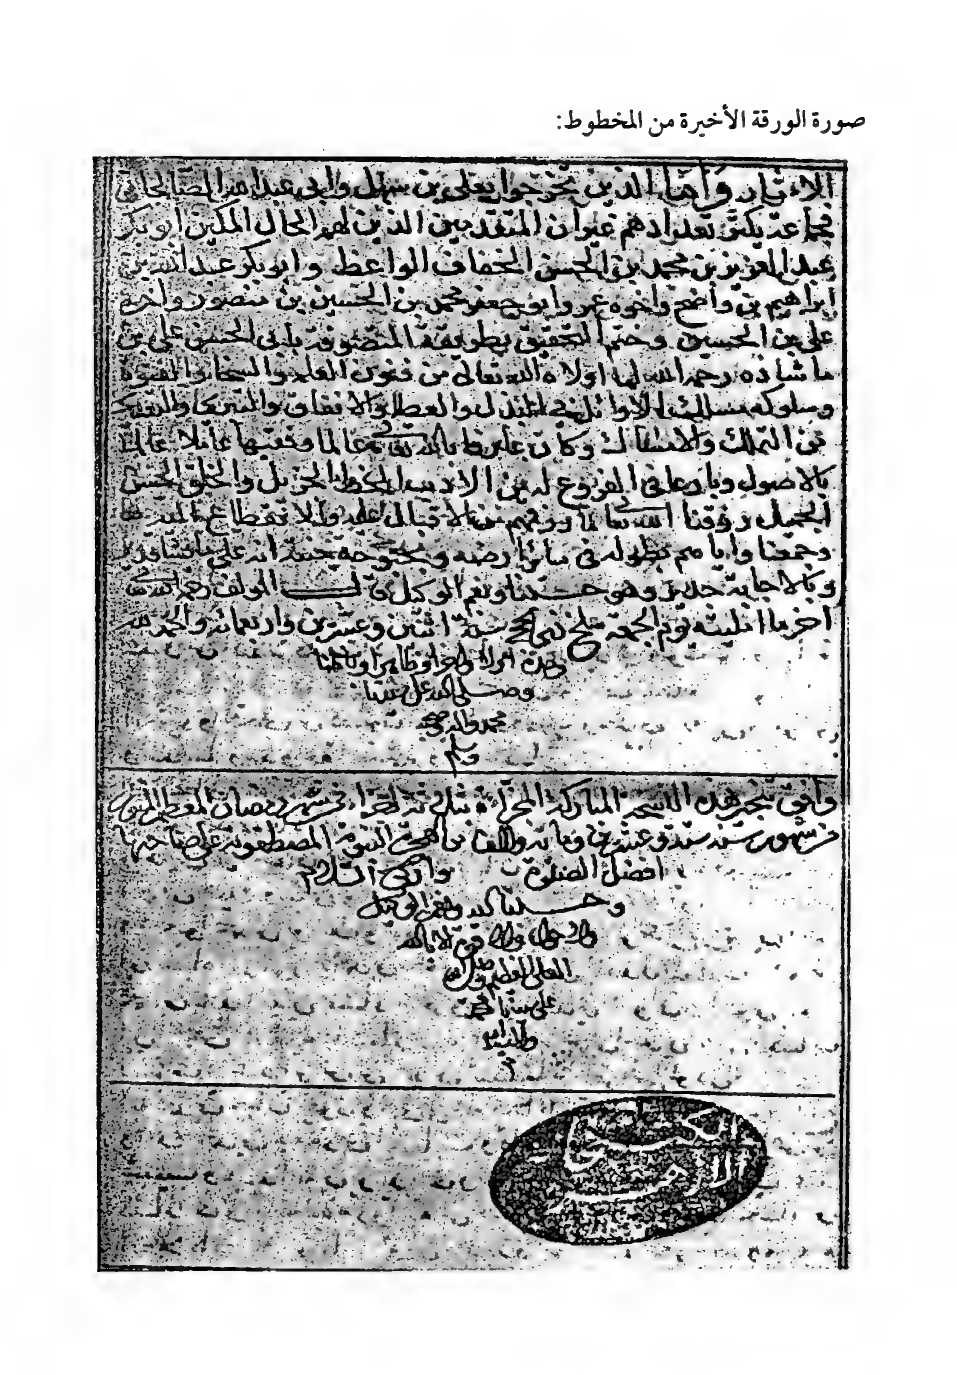 صورة الورقة الأخيرة من المخطوط:
الاختيار وأما الذين تخرجوا بعلي بن سهل وأبي عبد الله الصالحاني
فجماعة يكثر تعدادهم غير أن المتقدمين الذين لهم الحال المكين أبو بكر
عبد العزيز بن محمد بن الحسن الخفاف الواعظ وأبو بكر عبد الله بن
إبراهيم بن واضح وأخوه عمر وأبو جعفر محمد بن الحسين بن منصور وأخيه
علي بن الحسين وختم التحقيق بطريقة المتصوفة بأبي الحسن علي بن
ماشاذه رحمه الله لما أولاه الله تعالى من فنون العلم والسخاء والفتوة
وسلوكه مسالك الأوائل في البذل والعطاء والانفاق والتبري والتعري
من التملك والامساك وكان عارفا بالله تعالى عالما وفقيها عاملا عالما
بالاصول وبارعا في الفروع له من الأدب الحظ الجزيل والخلق الحسن
الجميل رزقنا الله ما رزقهم من الاقبال عليه والانقطاع إليه
وجمعنا وإياهم بطوله في دار رضه وبحبوحة جنته انه على ما يشاء قدير
وبالاجابة جدير وهو حسبنا ونعم الوكيل قال المولف رحمه الله
آخر ما أمليته يوم الجمعة سلخ ذي الحجة سنة اثنين وعشرين وأربعمائة والحمد لله
وحده أولا وآخرا وظاهرا وباطنا
وصلى الله على نبينا
محمد وآله وصحبه
وسلم
وافق تحرير هذه النسخة المباركة في شهر رمضان المعظم
من شهور سنة ستة وعشرين ومائة وألف من الهجرة النبوية المصطفوية على صاحبها
افضل الصلوة وازكى السلام
وحسبنا الله ونعم الوكيل
ولا حول ولا قوة الا بالله
العلي العظيم وصلى الله
على سيدنا محمد
وآله
م